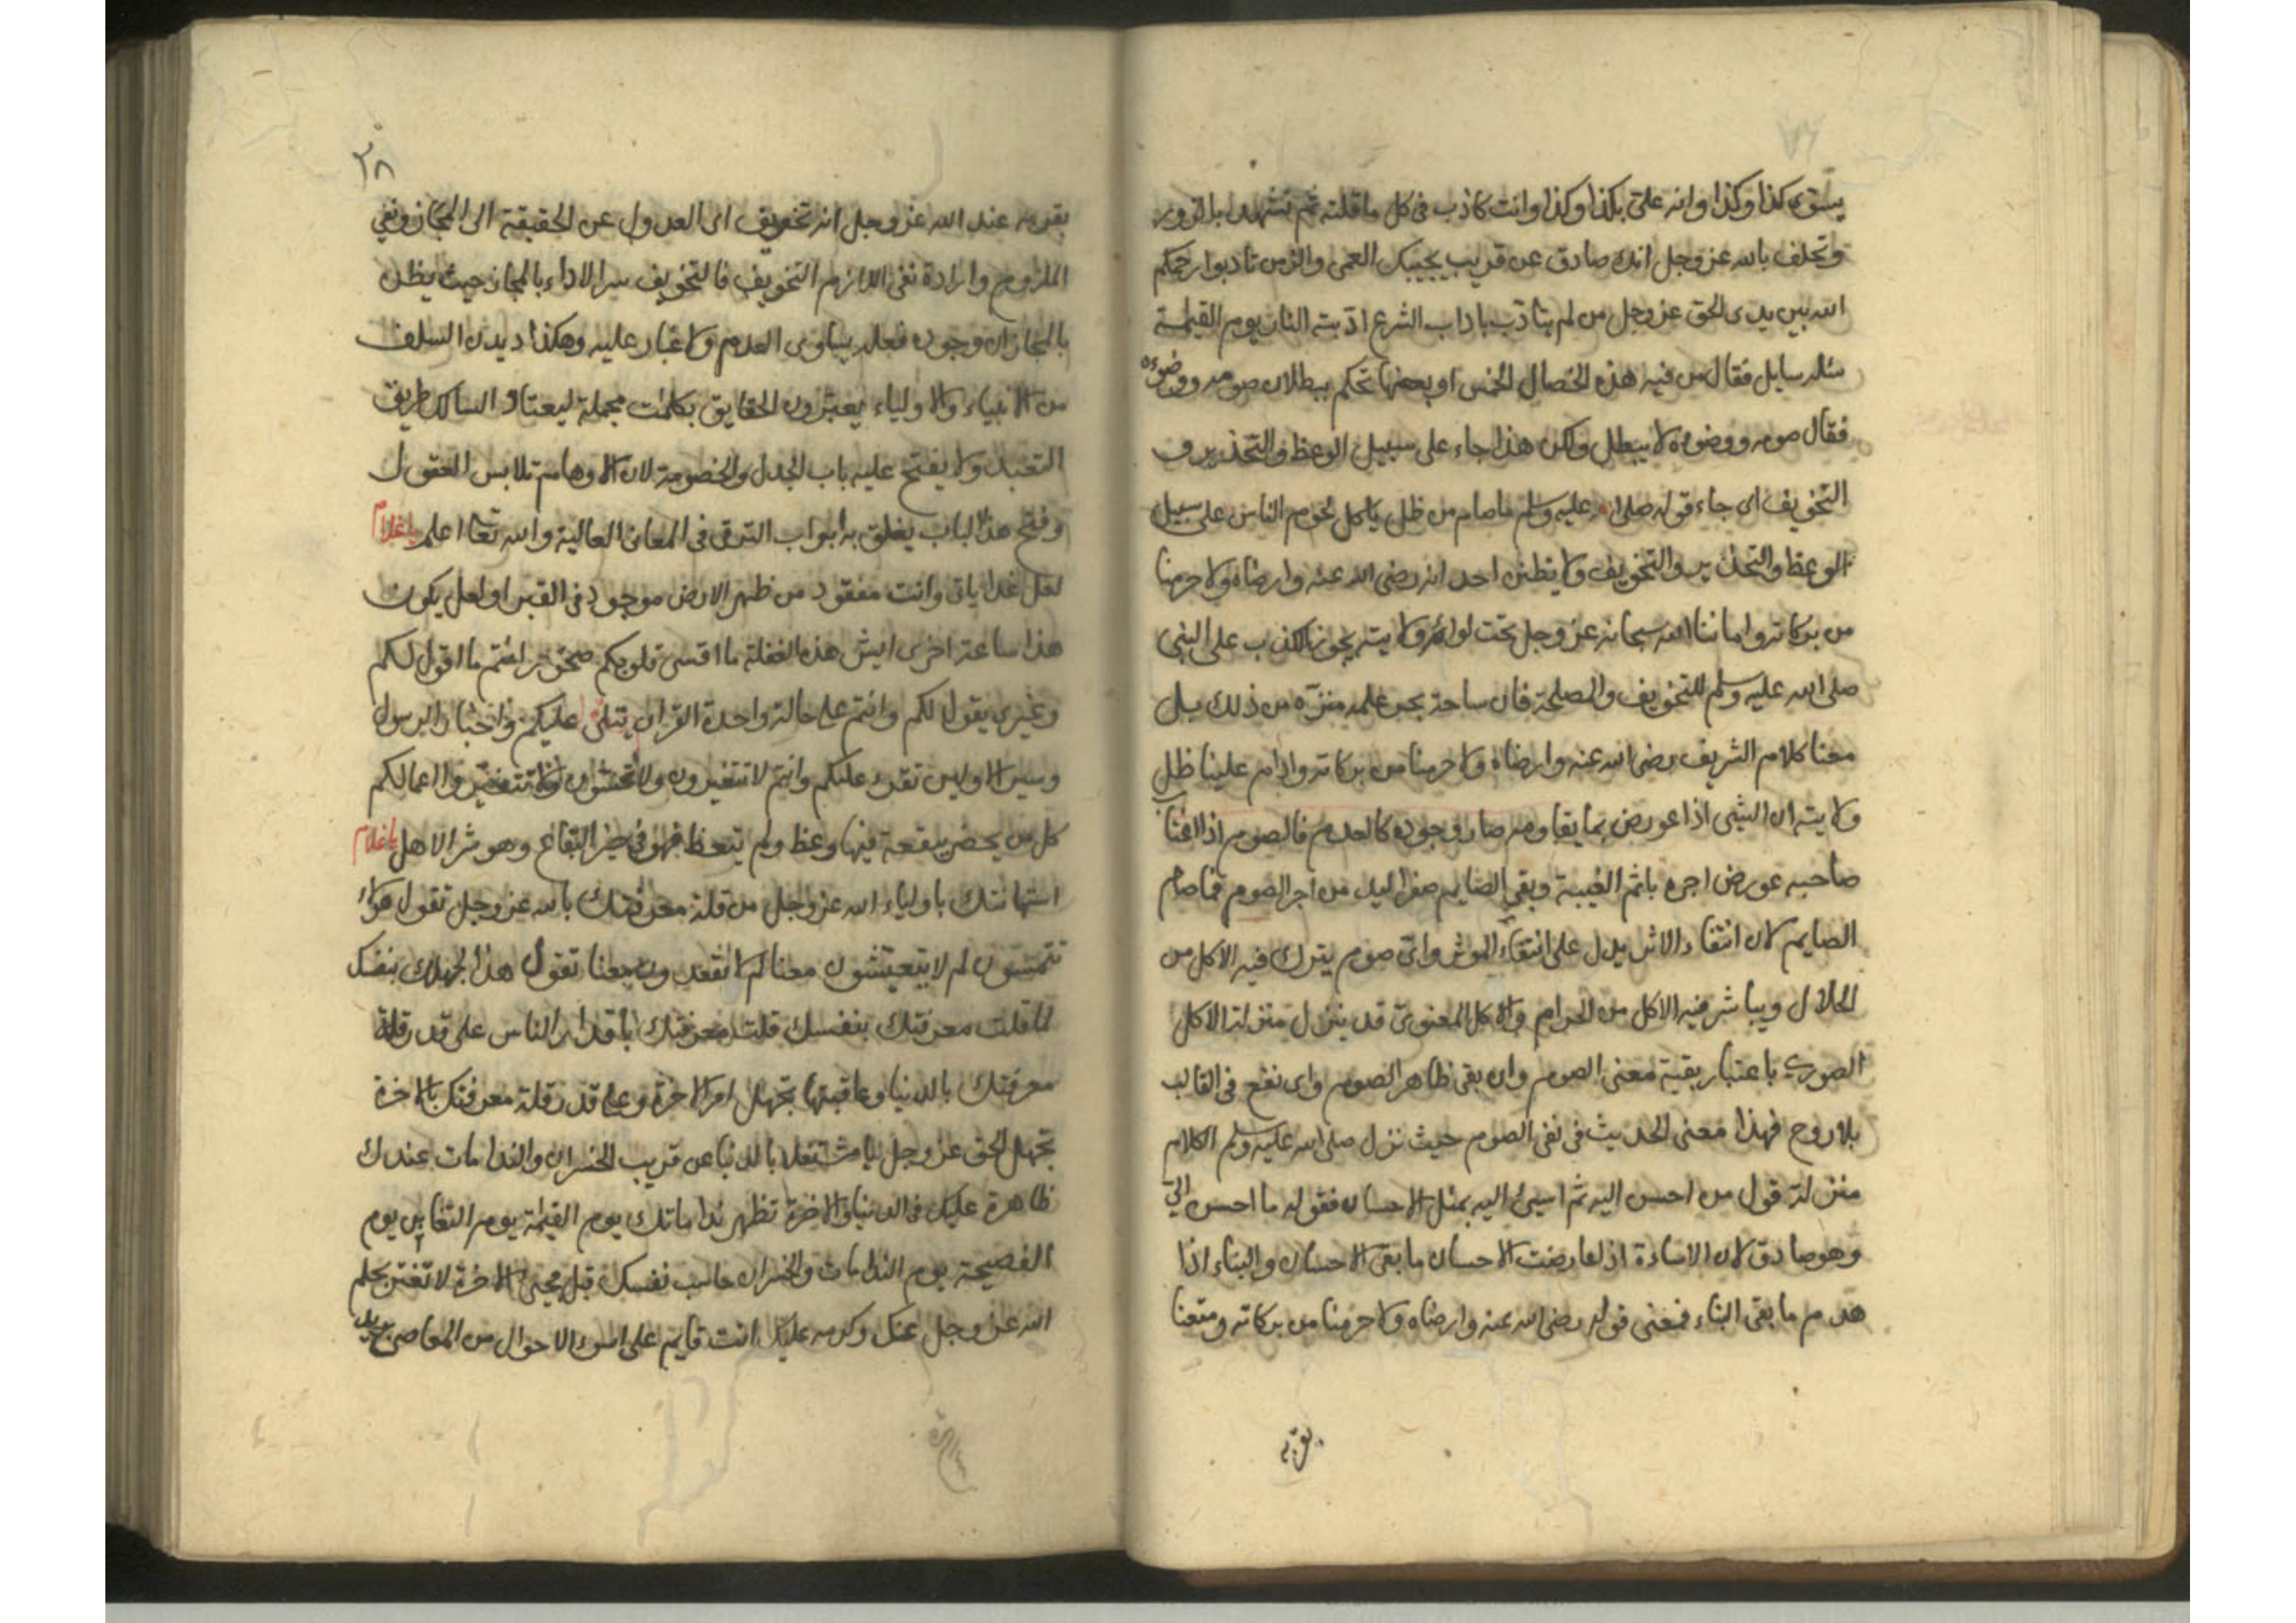 يسوى كذا وكذا وانه على بكذا وكذا وانت كاذب فى كل ما قلته ثم تشهد بالزور
وتحلف بالله عز وجل انك صادق عن قريب يجيبك العمى والزمن تادبوا رحمكم
الله بين يدى الحق عز وجل من لم يتأدب باداب الشرع ادّبته النار يوم القيمة
سئله سايل فقال من فيه هذه الخصال الخمس او بعضها تحكم ببطلان صومه ووضوءه
فقال صومه ووضوءه لا يبطل ولكن هذا جاء على سبيل الوعظ والتحذير و
التخويف اى جاء قوله صلى الله عليه وسلم ما صام من ظل ياكل لحوم الناس على سبيل
الوعظ والتحذير والتخويف ولا يظنن احد انه رضى الله عنه وارضاه ولا حرمنا
من بركاته واماتنا الله سبحانه عز وجل تحت لوائه ولايته يجوز الكذب على النبى
صلى الله عليه وسلم للتخويف والمصلحة فان ساحة بحر علمه منزّه من ذلك بل
معنا كلام الشريف رضى الله عنه وارضاه ولا حرمنا من بركاته وادام علينا ظل
ولايته ان الشىء اذا عورض بما يقاومه صار وجوده كالعدم فالصوم اذا اغتاب
صاحبه عورض اجره باثم الغيبة وبقى الصايم صفر اليد من اجر الصوم فما صام
الصايم لان انتفاء الاثر يدل على انتفاء الموثر واىّ صوم يترك فيه الاكل من
الحلال ويباشر فيه الاكل من الحرام والاكل المعنوىّ قد ينزل منزلة الاكل
الصورى باعتبار بقية معنى الصوم وان بقى ظاهر الصوم واى نفع فى القالب
بلا روح فهذا معنى الحديث فى نفى الصوم حيث نزل صلى الله عليه وسلم الكلام
منزلة قول من احسن اليه ثم اسيئ اليه بمثل الاحسان فقوله ما احسن الىّ
وهو صادق لان الاساءة اذا عارضت الاحسان ما بقى الاحسان والبناء اذا
هدم ما بقى البناء فمعنى قوله رضى الله عنه وارضاه ولا حرمنا من بركاته ومتعنا
بقربه
٣٨
بقربه عند الله عز وجل انه تخويف اى العدول عن الحقيقة الى المجاز ونفى
الملزوم وارادة نفى اللازم التخويف فالتخويف سر الاداء بالمجاز حيث يظن
بالمجاز ان وجود فعله يساوى العدم ولا غبار عليه وهكذا ديدن السلف
من الانبياء والاولياء يعبّرون الحقايق بكلمات مجملة ليعتاد السالك طريق
التعبد ولا يفتح عليه باب الجدل والخصومة لان الاوهام تلابس العقول
وفتح هذا الباب يغلق به ابواب الترقى فى المعانى العالية والله تعالى اعلم يا غلام
لعل غدا ياتى وانت مفقود من ظهر الارض موجود فى القبر او لعل يكون
هذا ساعة اخرى ايش هذه الغفلة ما اقسى قلوبكم صخور انتم ما اقول لكم
وغيرى يقول لكم وانتم على حالة واحدة القران يتلى عليكم واخبار الرسول
وسير الاولين تقرء عليكم وانتم لا تتغيرون ولا تخشون ولا تتغير اعمالكم
كل من يحضر ببقعة فيها وعظ ولم يتعظ فهو فى خير البقاع وهو شر الاهل يا غلام
استهانتك باولياء الله عز وجل من قلة معرفتك بالله عز وجل تقول هؤلاء
لم لا يتعيشون معنا لم لا تقعدون معنا تقول هذا لجهلك بنفسك
لما قلت معرفتك بنفسك قلت معرفتك باقدار الناس على قدر قلة
معرفتك بالدنيا وعاقبتها تجهل امر الاخرة وعلى قدر قلة معرفتك بالاخرة
تجهل الحق عز وجل يا مشتغلا بالدنيا عن قريب الخسران والندامات عندك
ظاهرة عليك فى الدنيا والاخرة تظهر نداماتك يوم القيمة يوم التغابن يوم
الفضيحة يوم الندامات والخسران حاسب نفسك قبل مجئ الاخرة لا تغتر بحلم
الله عز وجل عنك وكرمه عليك انت قايم على اسوء الاحوال من المعاصى